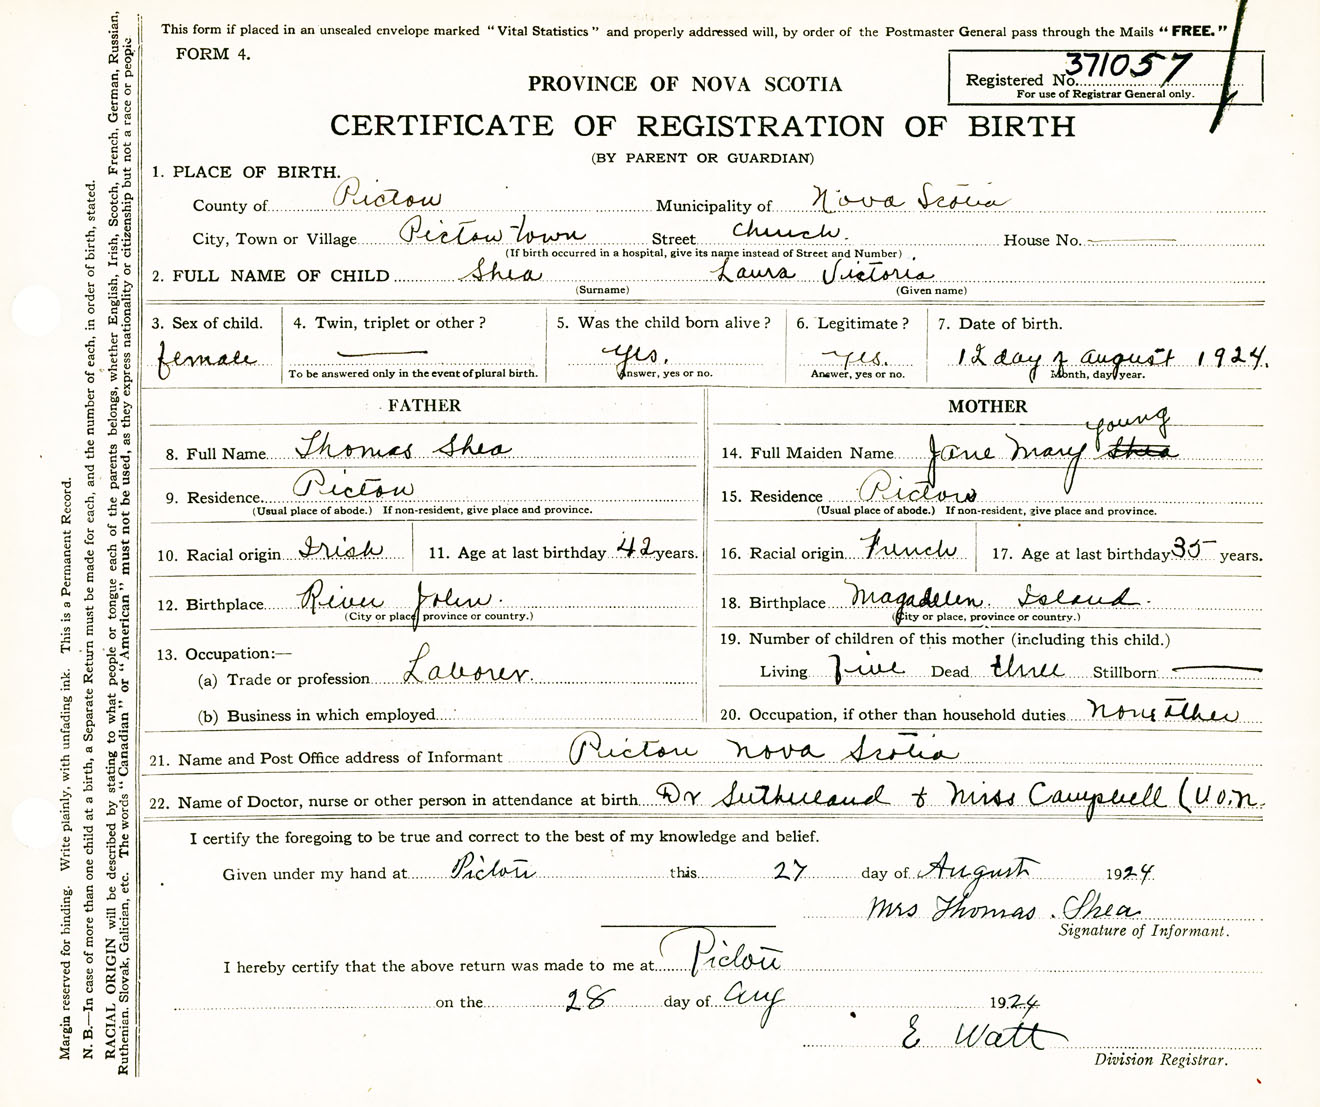 This form if placed in an unsealed envelope marked "Vital Statistics" and properly addressed will, by order of the Postmaster General pass through the Mails "FREE."
FORM 4.
Registered No. 371057
For use of Registrar General only.
PROVINCE OF NOVA SCOTIA
CERTIFICATE OF REGISTRATION OF BIRTH
(BY PARENT OR GUARDIAN)
1. PLACE OF BIRTH.
County of Pictou Municipality of Nova Scotia
City, Town or Village Pictou Town Street Church. House No. —
(If birth occurred in a hospital, give its name instead of Street and Number)
2. FULL NAME OF CHILD Shea Laura Victoria
(Surname) (Given name)
3. Sex of child. 4. Twin, triplet or other? 5. Was the child born alive? 6. Legitimate? 7. Date of birth.
female — yes. yes. 12 day of august 1924.
To be answered only in the event of plural birth. Answer, yes or no. Answer, yes or no. Month, day, year.
FATHER MOTHER
8. Full Name Thomas Shea 14. Full Maiden Name Jane Mary Shea young
9. Residence. Pictou 15. Residence Pictou
(Usual place of abode.) If non-resident, give place and province. (Usual place of abode.) If non-resident, give place and province.
10. Racial origin Irish 11. Age at last birthday 42 years. 16. Racial origin French 17. Age at last birthday 35 years.
12. Birthplace River John. 18. Birthplace Magadelen. Island.
(City or place, province or country.) (City or place, province or country.)
13. Occupation:— 19. Number of children of this mother (including this child.)
(a) Trade or profession Laborer. Living five Dead three Stillborn —
(b) Business in which employed 20. Occupation, if other than household duties none other
21. Name and Post Office address of Informant Pictou Nova Scotia
22. Name of Doctor, nurse or other person in attendance at birth Dr Sutherland & Miss Campbell (V.O.N.
I certify the foregoing to be true and correct to the best of my knowledge and belief.
Given under my hand at Pictou this 27 day of August 1924
Mrs Thomas. Shea
Signature of Informant.
I hereby certify that the above return was made to me at Pictou
on the 28 day of Aug 1924
E Watt
Division Registrar.
Margin reserved for binding. Write plainly, with unfading ink. This is a Permanent Record.
N. B.—In case of more than one child at a birth, a Separate Return must be made for each, and the number of each, in order of birth, stated.
RACIAL ORIGIN will be described by stating to what people or tongue each of the parents belongs, whether English, Irish, Scotch, French, German, Russian,
Ruthenian, Slovak, Galician, etc. The words "Canadian" or "American" must not be used, as they express nationality or citizenship but not a race or people